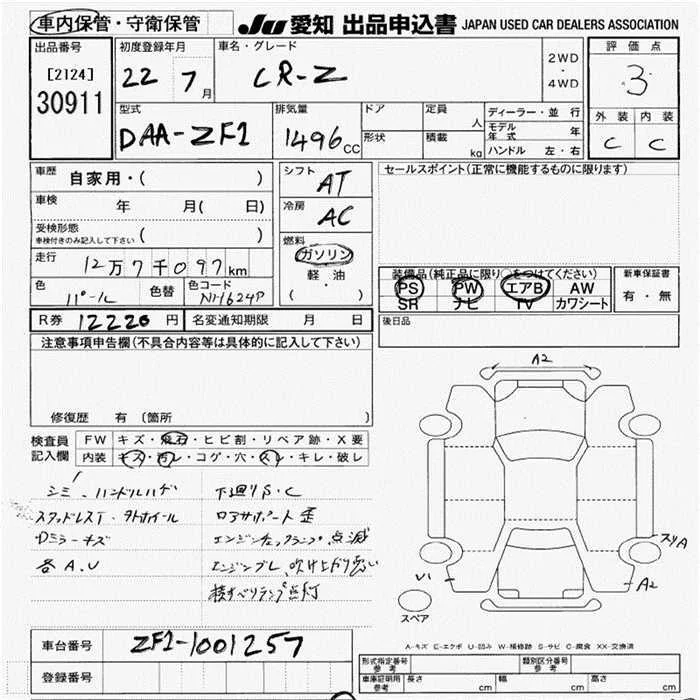 車内保管・守衛保管 JU 愛知 出品申込書 JAPAN USED CAR DEALERS ASSOCIATION
出品番号 初度登録年月 車名・グレード 評価点
[2124] 22 7月 CR-Z 2WD・4WD 3
30911
型式 排気量 ドア 定員 人 ディーラー・並行 外装 内装
DAA-ZF1 1496cc 形状 積載 kg モデル年式 年 C C
ハンドル 左・右
車歴 自家用・( ) シフト AT セールスポイント(正常に機能するものに限ります)
車検 年 月( 日) 冷房 AC
受検形態 ( )
車検付きのみ記入して下さい
燃料 ガソリン
走行 12万7千097km 軽・油
( )
装備品(純正品に限り○をつけてください) 新車保証書
PS PW エアB AW 有・無
SR ナビ TV カワシート
色 パール 色替 色コード NH624P
R券 12220円 名変通知期限 月 日 後日品
注意事項申告欄(不具合内容等は具体的に記入して下さい)
修復歴 有 〔箇所
検査員記入欄 FW キズ・飛石・ヒビ割・リペア跡・X要
内装 キズ・汚レ・コゲ・穴・スレ・キレ・破レ
シミ・ハンドルハゲ 下廻りS・C
スタッドレスT・タトホイール ロアサポート歪
Dミラーキズ エンジンチェックランプ点滅
各A.U エンジンブレ、吹け上がり悪い
横すべりランプ点灯
A2
スリA
U1
A2
スペア
A-キズ E-エクボ U-凹み W-補修跡 S-サビ C-腐食 XX-交換済
車台番号 ZF1-1001257
登録番号
形式指定番号 参考 類別区分番号 参考
車庫証明用 参考 長さ cm 幅 cm 高さ cm